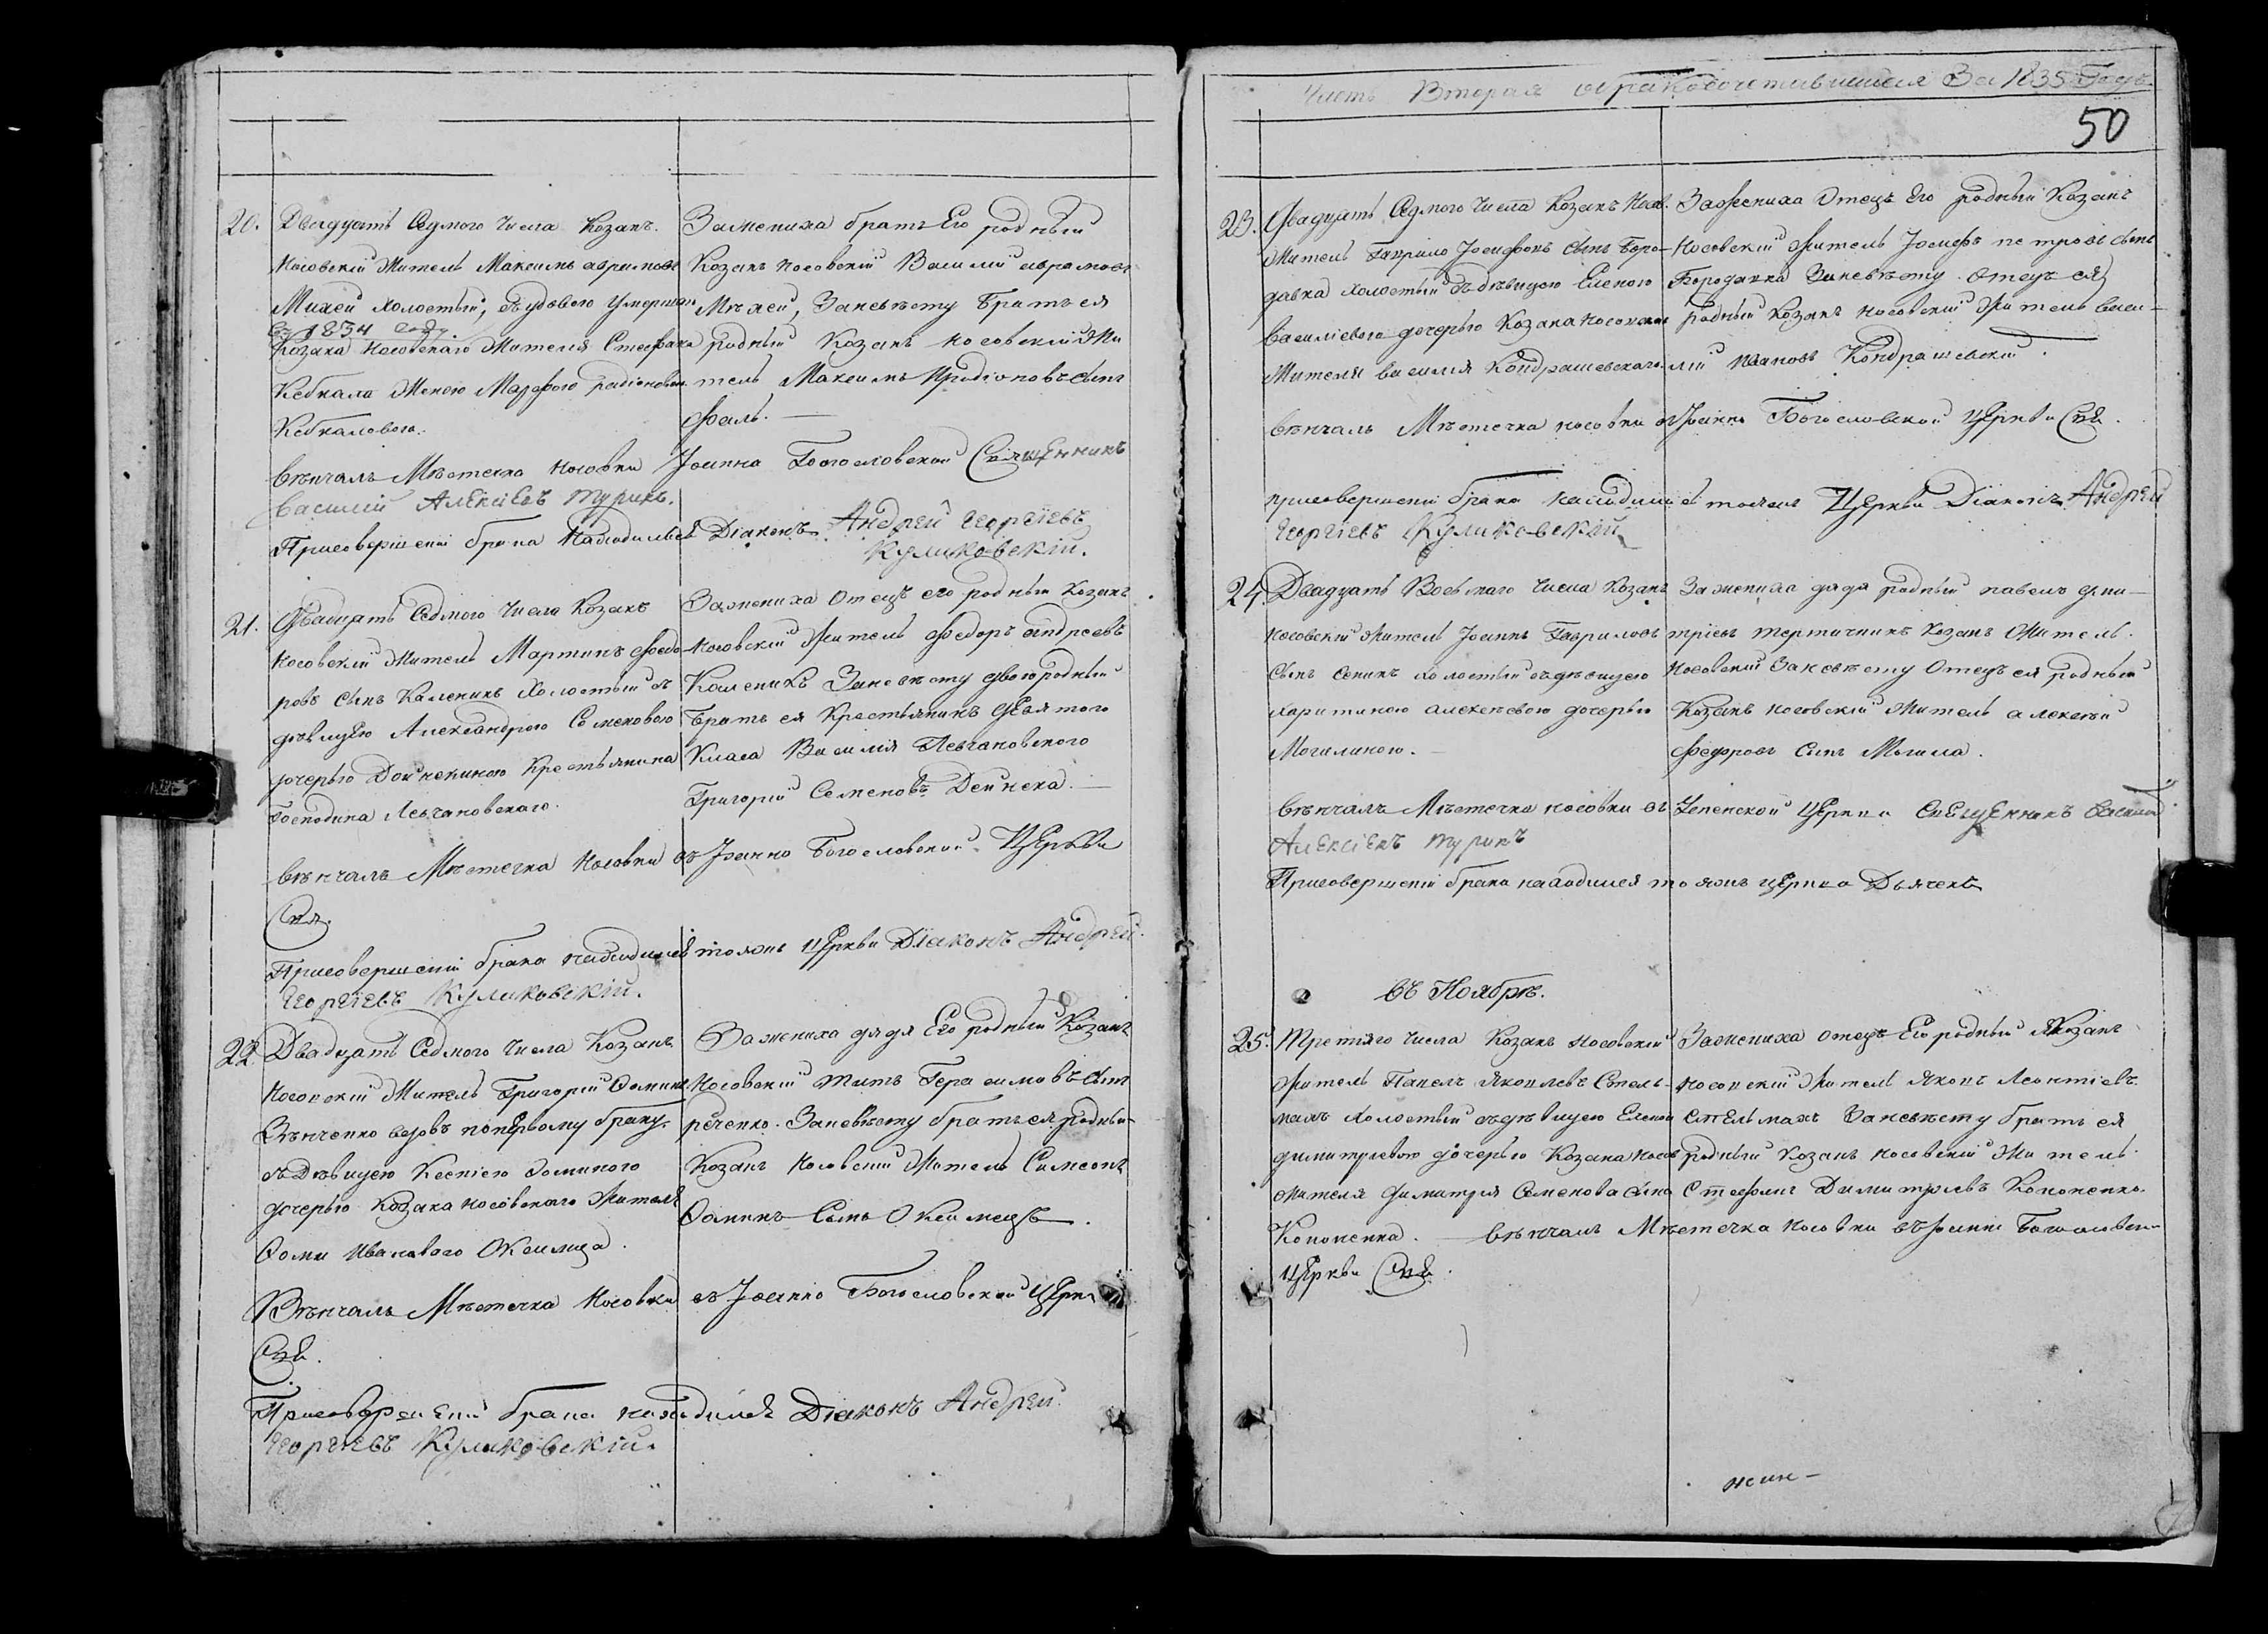 20. Двадцать Седмого Числа Козакъ
Носовскій Житель Максимъ Аврамовъ
Михей Холостый, съ удовою Умершаго
въ 1834 году
Козака Носовскаго Жителя Стефана
Кебкала Женою Марфою Радіоновою
Кебкаловою.
Зажениха братъ Его родный
Козакъ Носовскій Василій Аврамовъ
Михей, Заневѣсту Братъ ея
родный Козакъ Носовскій Жи
тель Максимъ Иродіоновъ сынъ
Фаль.
Вѣнчалъ Мѣстечка Носовки Іоанно Богословской Священникъ
Василій Алексіевъ Туринъ.
Присовершеніи брака Находился Діаконъ Андрей Георгіевъ
Куликовскій.
21. Двадцать Седмого Числа Козакъ
Носовскій Житель Мартинъ Федо-
ровъ сынъ Каленикъ Холостый съ
дѣвицею Александрою Семеновою
дочерью Дейнекиною Крестьянина
Господина Левчановского.
Зажениха Отецъ его родный Козакъ
Носовскій Житель Федоръ Андреевъ
Каленикъ Заневѣсту двоюродный
Братъ ея Крестьянинъ Девятого
Класа Василія Левчановского
Григорій Семеновъ Дейнека.
Вѣнчалъ Мѣстечка Носовки въ Іоанно Богословской Церкви
Свя.
Присовершеніи брака находился тояжъ церкви Діаконъ Андрей
Георгіевъ Куликовскій.
22. Двадцать Седмого Числа Козакъ
Носовскій Житель Григорій Фомин
вдовъ поперьвому браку,
съ Дѣвицею Ксеніею Фоминою
дочерью Козака Носовского Жителя
Фомы Иванового
Зажениха дядя Его родный Козакъ
Носовскій Жить Герасимовъ Сынъ
Заневѣсту братъ ея родный
Козакъ Носовскій Житель Симеонъ
Фоминъ Сынъ
Вѣнчалъ Мѣстечка Носовки въ Іоанно Богословской Церкв
Свя.
Присовершеніи брака находился Діаконъ Андрей
Георгіевъ Куликовскій.
Часть Вторая обракосочетавшихся За 1835 Годъ
50
23. Двадцать Седмого Числа Козакъ Носов.
Житель Гаврило Іосифовъ сынъ Боро-
давка холостый съ дѣвицею Еленою
Василіевою дочерью Козака Носовского
Жителя Василія Кондрашевскаго
Зажениха Отецъ Его родный Козакъ
Носовскій Житель Іосифъ Петровъ сынъ
Бородавка Заневѣсту Отецъ ея
родный Козакъ Носовскій Житель Васи-
лій Ивановъ Кондрашевскій.
Вѣнчалъ Мѣстечка Носовки въ Іоанно Богословской Церкви Свя.
Присовершеніи брака находился тояжъ Церкви Діаконъ Андрей
Георгіевъ Куликовскій
24. Двадцать Восьмаго Числа Козакъ
Носовскій Житель Іоаннъ Гавриловъ
Сынъ Сеникъ Холостый съ дѣвицею
Харитиною Алексѣевою дочерью
Могилиною.
Зажениха дядя родный Павелъ Дми-
тріевъ Тертичникъ Козакъ Житель
Носовскій Заневѣсту Отецъ ея родный
Козакъ Носовскій Житель Алексѣй
Федоровъ Сынъ Могила.
Вѣнчалъ Мѣстечка Носовки въ Успенской Церкви Священникъ Василій
Алексіевъ Туринъ
Присовершеніи брака находился тояжъ церкви Дьячекъ
въ Ноябрѣ.
25. Третяго Числа Козакъ Носовскій
Житель Павелъ Яковлевъ Стель-
махъ Холостый съ дѣвицею Еленою
Димитріевою дочерью Козака Носов
Жителя Димитрія Семенова сына
Кононенка.
Зажениха отецъ Его родный Козакъ
Носовскій Житель Яковъ Леонтіевъ
Стельмахъ Заневѣсту братъ ея
родный Козакъ Носовскій Житель
Стефанъ Димитріевъ Кононенко.
Вѣнчалъ Мѣстечка Носовки въ Іоанно Богословск
Церкви Свя.